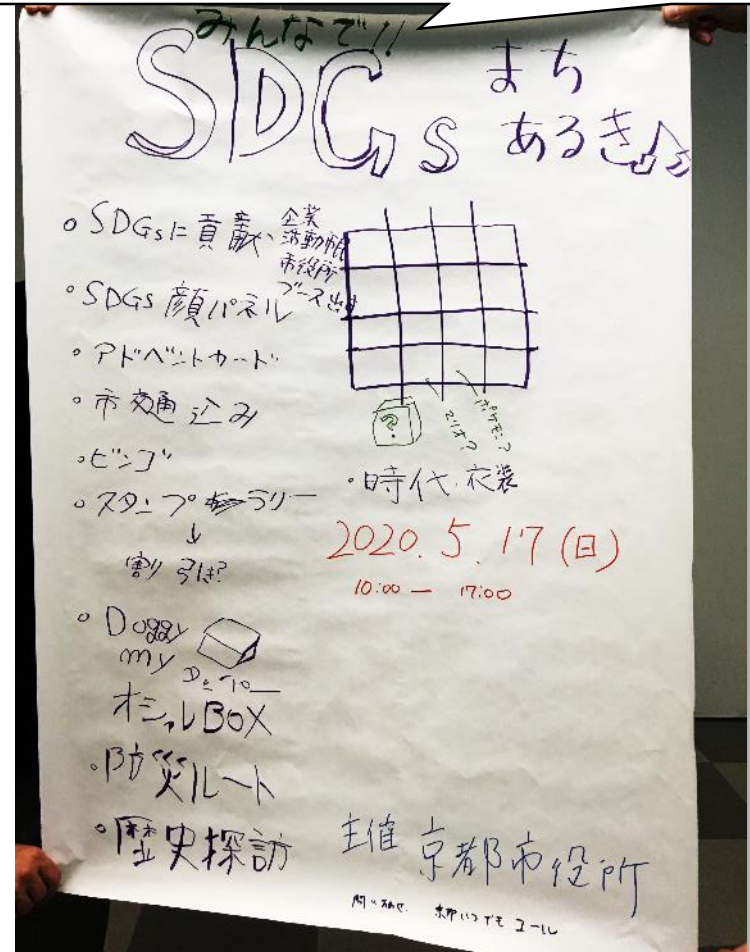 みんなで!!
SDGs まち
あるき♪
• SDGsに貢献、企業
活動市民
市役所
ブース出店
• SDGs 顔パネル
• アドベントカード
• 市交通込み
• ビンゴ
• スタンプラリー
↓
割引き?
• Doggy
my
オシャレBOX
• 防災ルート
• 歴史探訪
?
マリオ?
ポケモン?
• 時代衣装
2020.5.17(日)
10:00 — 17:00
主催 京都市役所
問い合わせ 京都いつでもコール